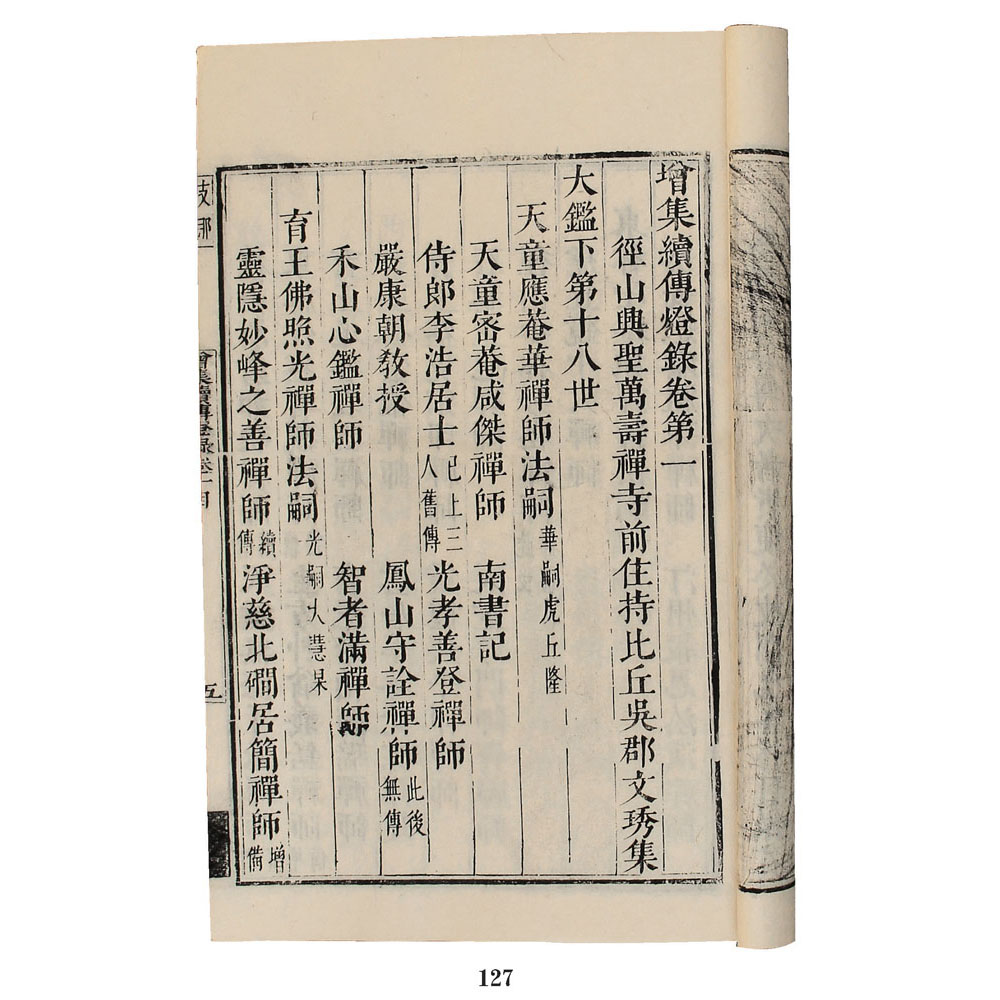 增集續傳燈錄卷第一
徑山興聖萬壽禪寺前住持比丘吳郡文琇集
大鑑下第十八世
天童應菴華禪師法嗣 華嗣虎丘隆
天童密菴咸傑禪師 南書記
侍郎李浩居士 已上三人舊傳 光孝善登禪師
嚴康朝教授 鳳山守詮禪師 此後無傳
禾山心鑑禪師 智者滿禪師
育王佛照光禪師法嗣 光嗣大慧杲
靈隱妙峰之善禪師 續傳 淨慈北磵居簡禪師 增備
支那
增集續傳燈錄卷一目
五
127